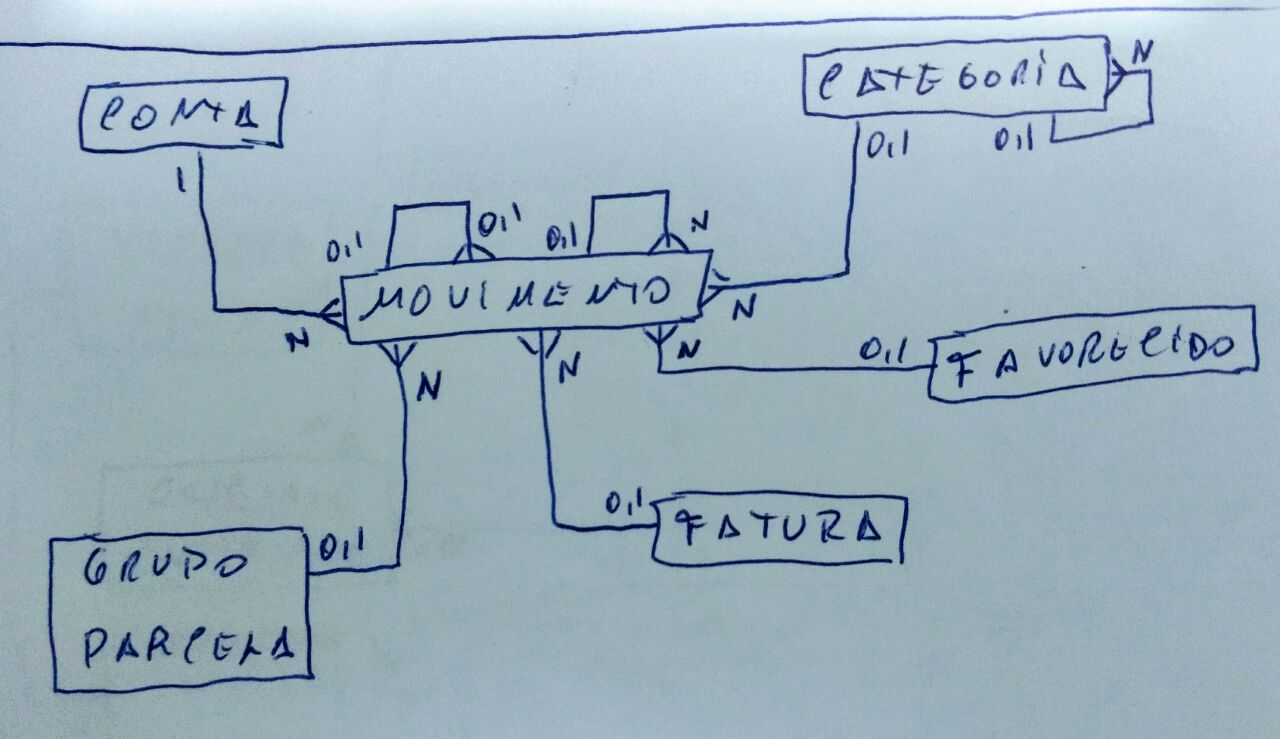 CONTA
CATEGORIA
N
0,1
0,1
1
0,1
0,1
0,1
N
MOVIMENTO
N
N
N
N
N
0,1
FAVORECIDO
0,1
FATURA
0,1
GRUPO
PARCELA